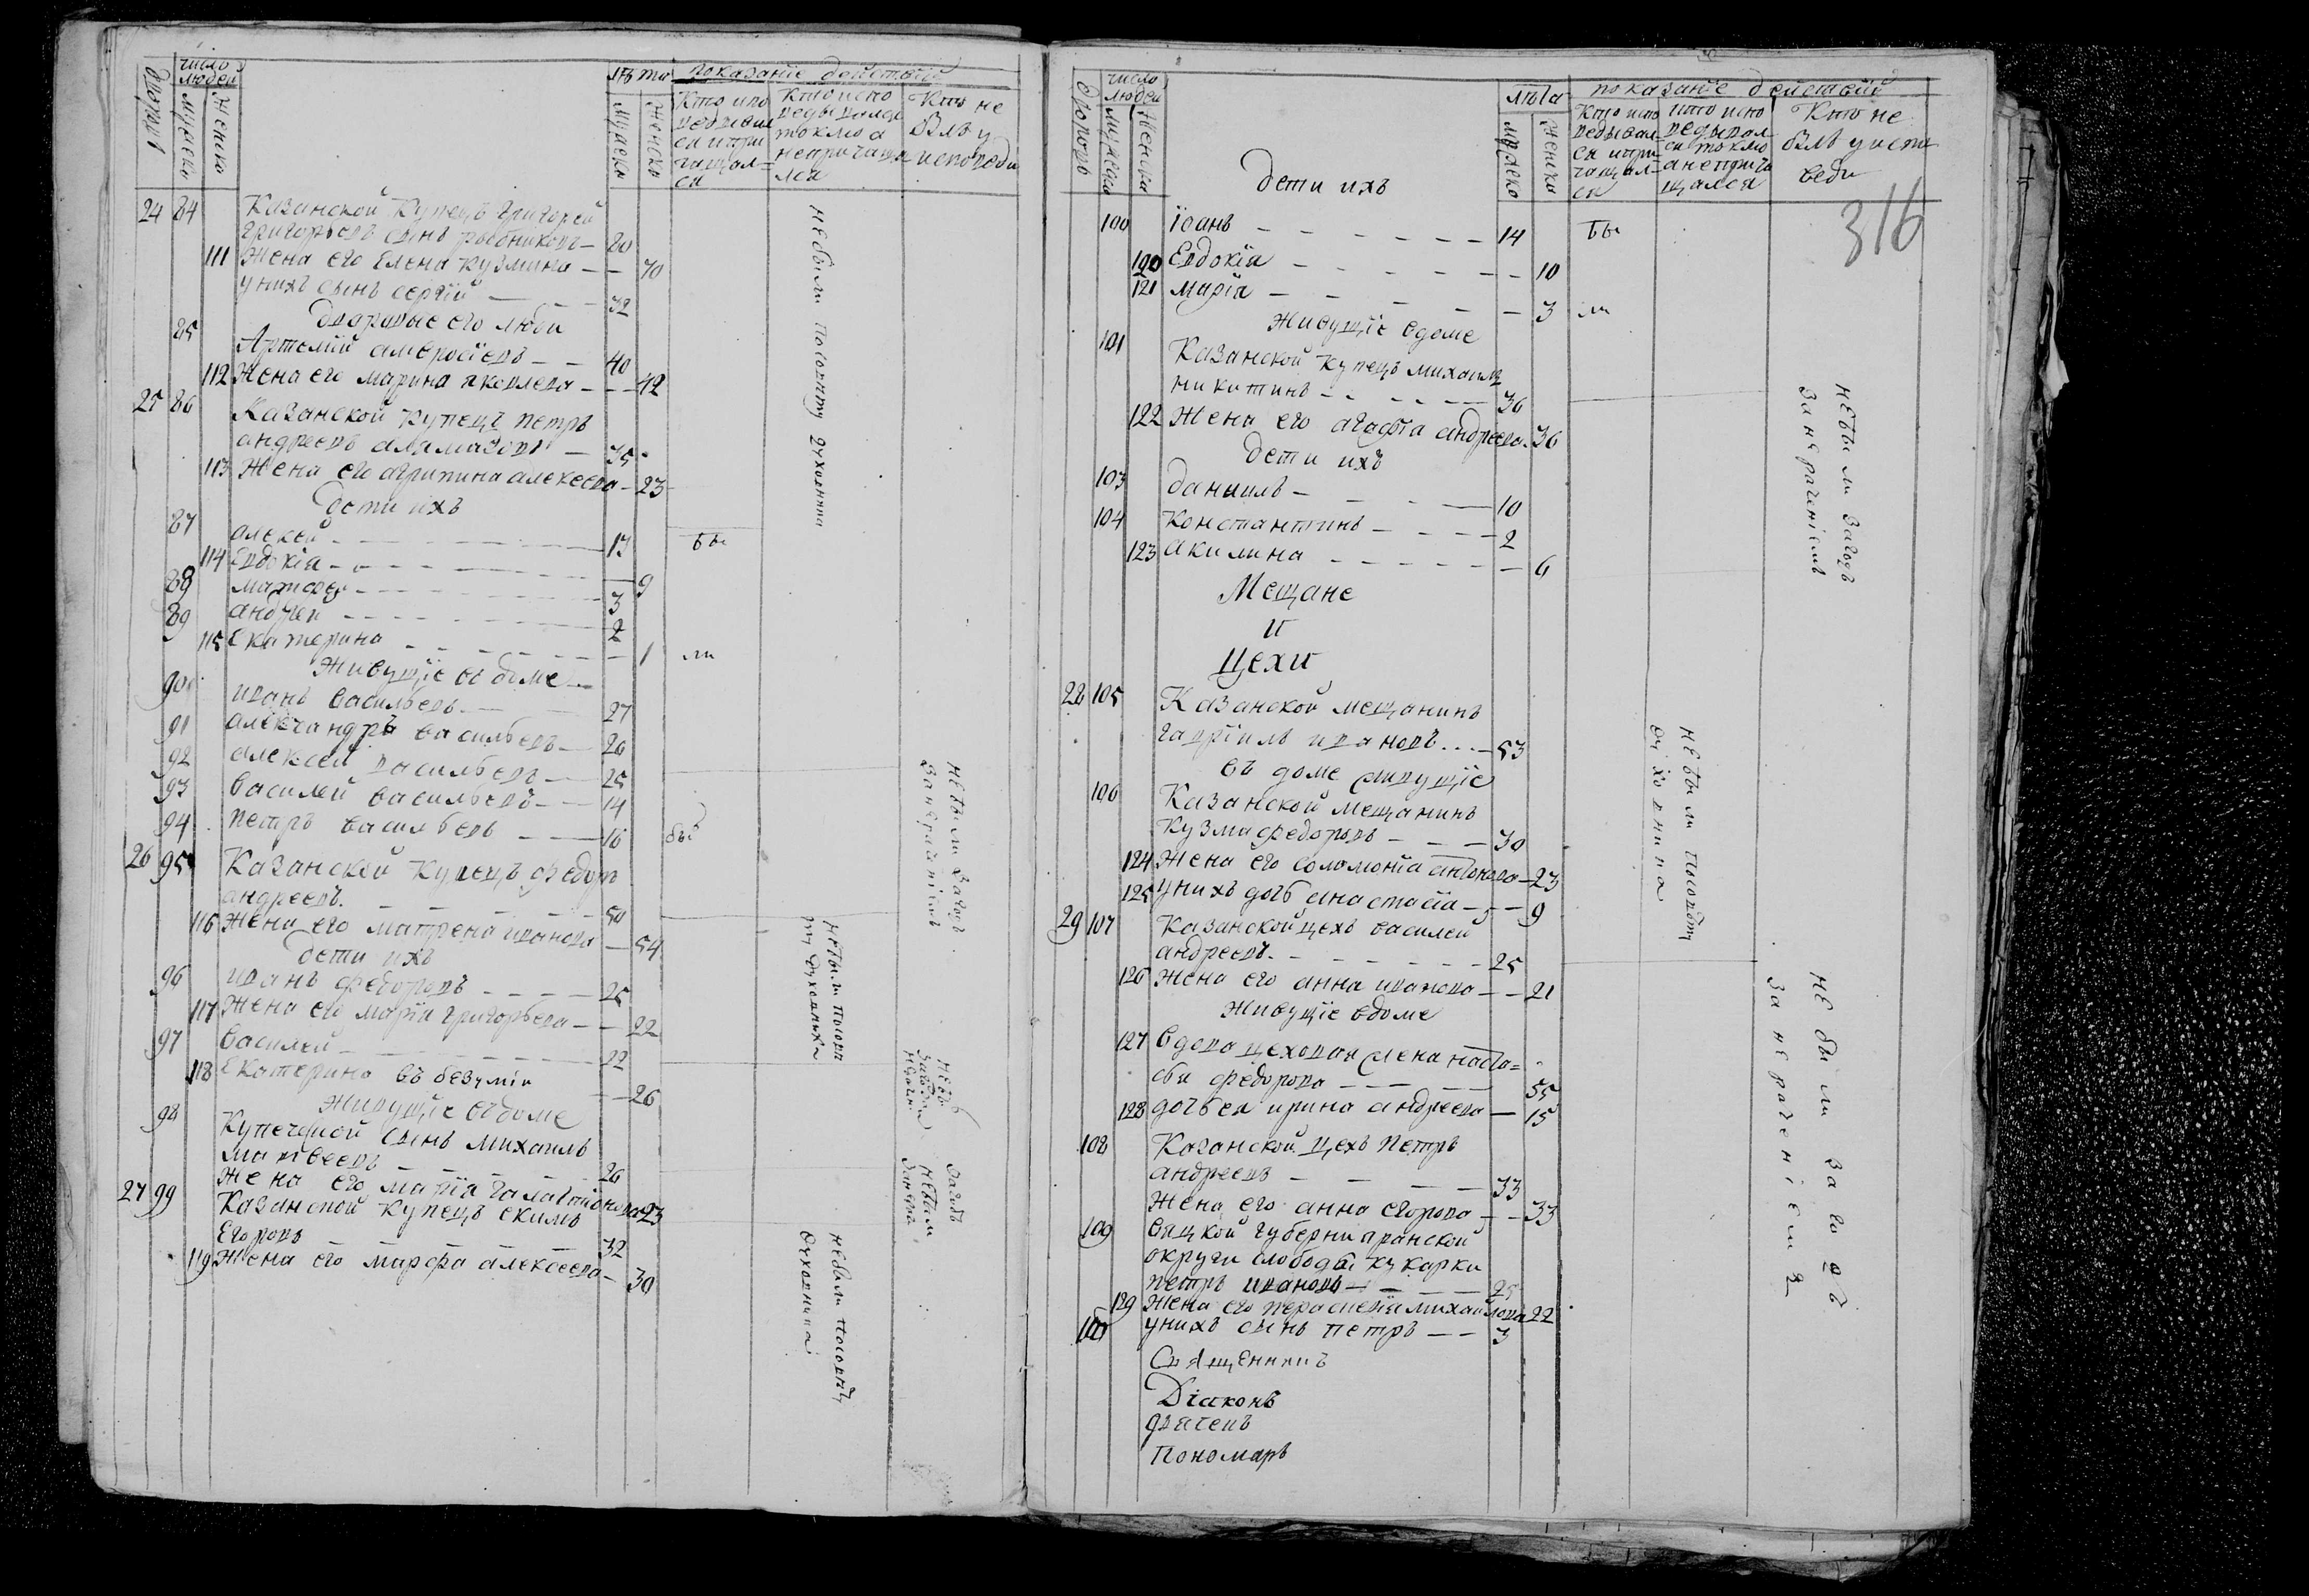 число
людей
дворов
мужеска
женска
лѣта
мужеска
женска
показание действий
Кто испо
ведывал
ся и при
чащал=
ся
Кто испо
ведывался
токмо а
не причаща
лся
Кто не
былъ у
исповеди
24 84 Казанской купецъ григорей
григорьевъ сынъ рыбниковъ — 80
111 жена его Елена кузмина — — 70
у нихъ сынъ сергїй — 32
дворовые его люди
85 Артемий амвросїевъ — — 40
112 жена его марина яковлева — — 42
25 86 Казанской купецъ петръ
андреевъ — 35
113 жена его агрипина алексеева — 23
дети ихъ
87 алексей — 13
114 Евдокїа — 9
88 матфей — 3
89 андрей — 2
115 Екатерина — 1
живущїе въ доме
90 иванъ васильевъ — 27
91 александръ васильевъ — 26
92 алексей васильевъ — 25
93 василей васильевъ — 14
94 петръ васильевъ — 16
26 95 Казанской купецъ федоръ
андреевъ — 50
116 жена его матрена иванова — 54
дети ихъ
96 иванъ федоровъ — 25
117 жена его марїя григорьева — — 22
97 василей — 22
118 Екатерина въ безумїи — 26
живущїе въ доме
98 Купеческой сынъ михаилъ
матвеевъ — 26
жена его марїя галактїонова 23
27 99 Казанской купецъ екимъ
Егоровъ — 32
119 жена его марфа алексеева — 30
бы
ли
бы
не были по совету духовника
не были за год
за нерачнїемъ
не были по сове
ту духовника
не были по совету
духовника
число
людей
дворовъ
мужеска
женска
лѣта
мужеска
женска
показанїе действий
Кто испо
ведывал=
ся и при=
чащал=
ся
кто испо
ведывал
ся токмо
а не прича
щался
Кто не
былъ у испо
веди
316
дети ихъ
100 їоанъ — 14
120 Евдокїа — 10
121 марїа — 3
живущїе в доме
101 Казанской купецъ михаилъ
никитинъ — 36
122 жена его агафїа андреева — 36
дети ихъ
103 данилъ — 10
104 константинъ — 2
123 акилина — 6
Мещане
и
цехи
28 105 Казанской мещанинъ
гаврїилъ ивановъ — 53
въ доме живущїе
106 Казанской мещанинъ
кузма федоровъ — 30
124 жена его соломонїа антонова — 23
125 у нихъ дочь анастасїа — 9
29 107 Казанской цехъ василей
андреевъ — 25
126 жена его анна иванова — — 21
живущїе в доме
127 вдова цеховая настa=
федорова — 55
128 дочь ея ирина андреева — 15
108 Казанской цехъ петръ
андреевъ — 33
жена его анна егорова — — 33
109 вяцкой губерни яранской
округи слободы кукарки
петръ ивановъ — 25
129 жена его пераскевїя михайлова 22
у нихъ сынъ петръ — — 3
Священникъ
Дїаконъ
дьячекъ
Пономарь
бы
ли
не были за годъ
за нерачнїемъ
не были по совету
духовника
не были за годъ
за нераченїемъ